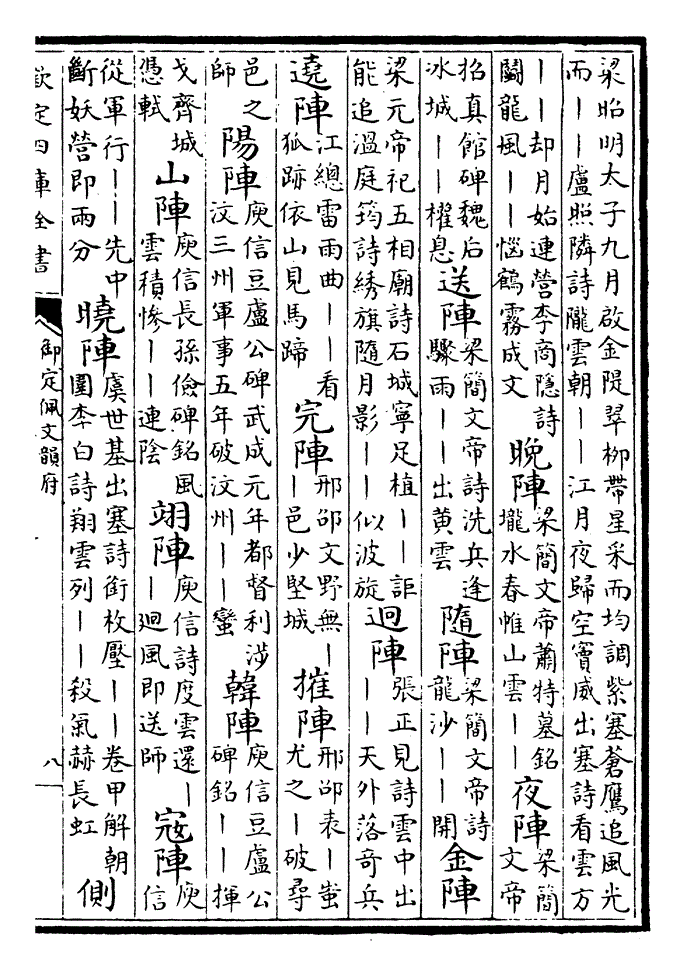 梁昭明太子九月啟金隄翠栁帶星采而均調紫塞蒼鷹追風光
而丨丨盧照隣詩隴雲朝丨丨江月夜歸空竇威出塞詩看雲方
丨丨却月始連營李商隱詩
鬭龍風丨丨惱鶴霧成文
晚陣
梁簡文帝蕭特墓銘
壠水春惟山雲丨丨
夜陣
梁簡
文帝
招真館碑魏后
冰城丨丨櫂息
送陣
梁簡文帝詩洗兵逢
驟雨丨丨出黃雲
隨陣
梁簡文帝詩
龍沙丨丨開
金陣
梁元帝祀五相廟詩石城寧足植丨丨詎
能追溫庭筠詩綉旗隨月影丨丨似波旋
迴陣
張正見詩雲中出
丨丨天外落奇兵
遶陣
江總雷雨曲丨丨看
狐跡依山見馬蹄
完陣
邢邵文野無丨
丨邑少堅城
摧陣
邢邵表丨蚩
尤之丨破尋
邑之
師
陽陣
庾信豆盧公碑武成元年都督利沙
汶三州軍事五年破汶州丨丨蠻
韓陣
庾信豆盧公
碑銘丨丨揮
戈齊城
憑軾
山陣
庾信長孫儉碑銘風
雲積慘丨丨連陰
翊陣
庾信詩度雲還丨
丨廻風即送師
寇陣
庾
信
從軍行丨丨先中
斷妖營即兩分
曉陣
虞世基出塞詩銜枚壓丨丨卷甲解朝
圍李白詩翔雲列丨丨殺氣赫長虹
側
欽定四庫全書
御定佩文韻府
八